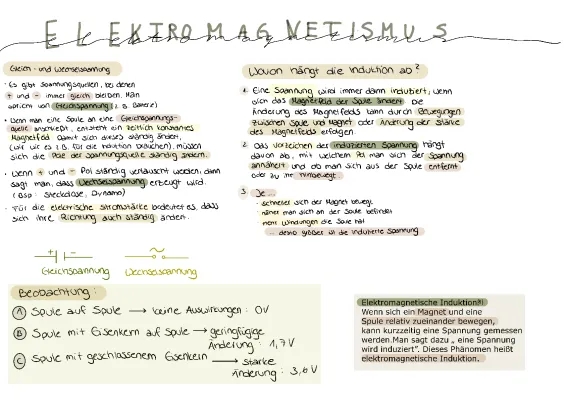 ELEKTROMAGNETISMUS
Gleich- und Wechselspannung
• Es gibt Spannungsquellen, bei denen
+ und - immer gleich bleiben. Man
spricht von Gleichspannung (z. B. Batterie)
• Wenn man eine Spule an eine Gleichspannungs-
quelle anschließt, entsteht ein zeitlich konstantes
Magnetfeld. Damit sich dieses ständig ändert,
(wie wir es z.B. für die Induktion brauchen), müssen
sich die Pole der Spannungsquelle ständig ändern.
• Wenn + und - Pol ständig vertauscht werden, dann
sagt man, dass Wechselspannung erzeugt wird.
(Bsp: Steckdose, Dynamo)
• Für die elektrische Stromstärke bedeutet es, dass
sich ihre Richtung auch ständig ändert.
+ -
Gleichspannung
Wechselspannung
Wovon hängt die Induktion ab?
1. Eine Spannung wird immer dann induziert, wenn
sich das Magnetfeld der Spule ändert. Die
Änderung des Magnetfelds kann durch Bewegungen
zwischen Spule und Magnet oder Änderung der Stärke
des Magnetfelds erfolgen.
2. Das Vorzeichen der induzierten Spannung hängt
davon ab, mit welchem Pol man sich der Spannung
annähert und ob man sich aus der Spule entfernt
oder zu ihr hinbewegt.
3. Je...
- schneller sich der Magnet bewegt
- näher man sich an der Spule befindet
- mehr Windungen die Spule hat
... desto größer ist die induzierte Spannung
Beobachtung:
A Spule auf Spule → keine Auswirkungen: 0V
B Spule mit Eisenkern auf Spule → geringfügige
Änderung: 1,7V
C Spule mit geschlossenem Eisenkern → starke
Änderung: 3,6V
Elektromagnetische Induktion
Wenn sich ein Magnet und eine
Spule relativ zueinander bewegen,
kann kurzzeitig eine Spannung gemessen
werden.Man sagt dazu „ eine Spannung
wird induziert". Dieses Phänomen heißt
elektromagnetische Induktion.